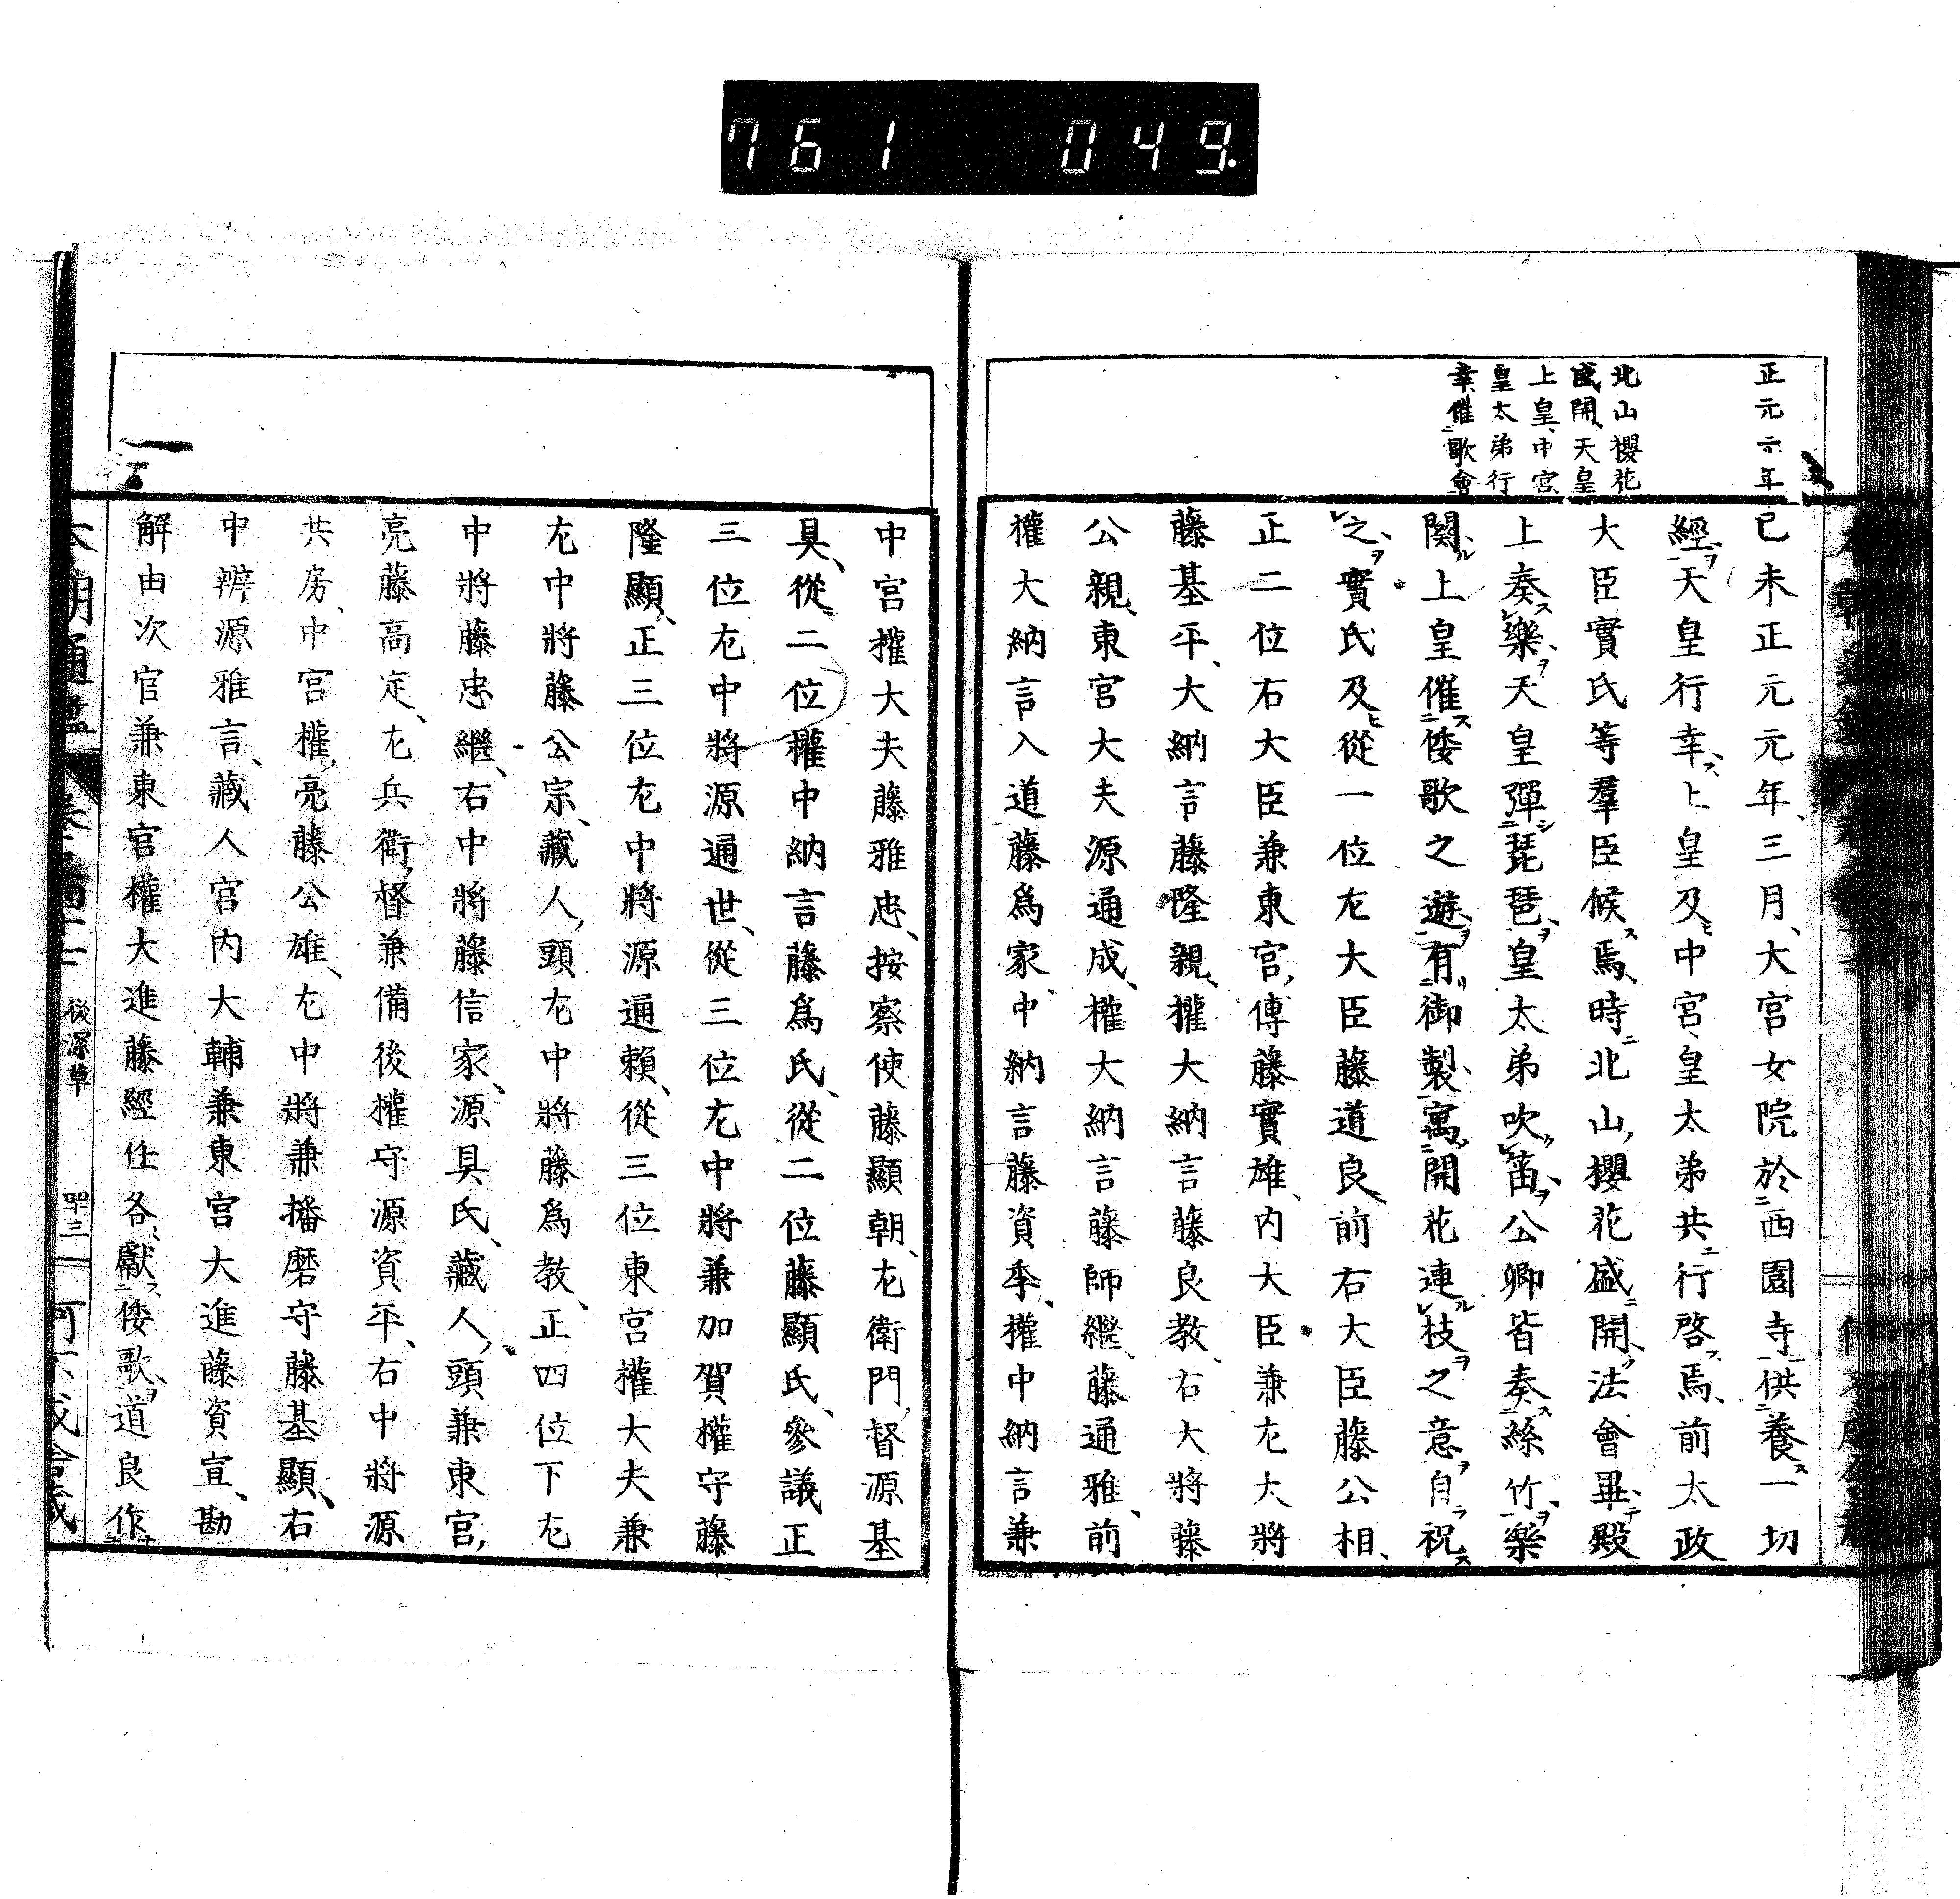 761 049
正元元年
北山櫻花
盛開、天皇
上皇、中宮
皇太弟行
幸、催歌會
己未正元元年、三月、大宮女院於西園寺供養一切
經天皇行幸、上皇及中宮、皇太弟共行啓焉、前太政
大臣實氏等羣臣候焉、時北山櫻花盛開、法會畢、殿
上奏樂、天皇彈琵琶、皇太弟吹笛、公卿皆奏絲竹、樂
闋、上皇催倭歌之遊、有御製、寓開花連枝之意自祝
之、實氏及從一位左大臣藤道良、前右大臣藤公相、
正二位右大臣兼東宮傅藤實雄、内大臣兼左大將
藤基平、大納言藤隆親、權大納言藤良教、右大將藤
公親、東宮大夫源通成、權大納言藤師繼、藤通雅、前
權大納言入道藤爲家、中納言藤資季、權中納言兼
中宮權大夫藤雅忠、按察使藤顯朝、左衛門督源基
具、從二位權中納言藤爲氏、從二位藤顯氏、參議正
三位左中將源通世、從三位左中將兼加賀權守藤
隆顯、正三位左中將源通頼、從三位東宮權大夫兼
左中將藤公宗、藏人頭左中將藤爲教、正四位下左
中將藤忠繼、右中將藤信家、源具氏、藏人頭兼東宮
亮藤高定、左兵衛督兼備後權守源資平、右中將源
共房、中宮權亮藤公雄、左中將兼播磨守藤基顯、右
中辨源雅言、藏人宮内大輔兼東宮大進藤資宣、勘
解由次官兼東宮權大進藤經任各獻倭歌、道良作
本朝通鑑 後深草 四十三